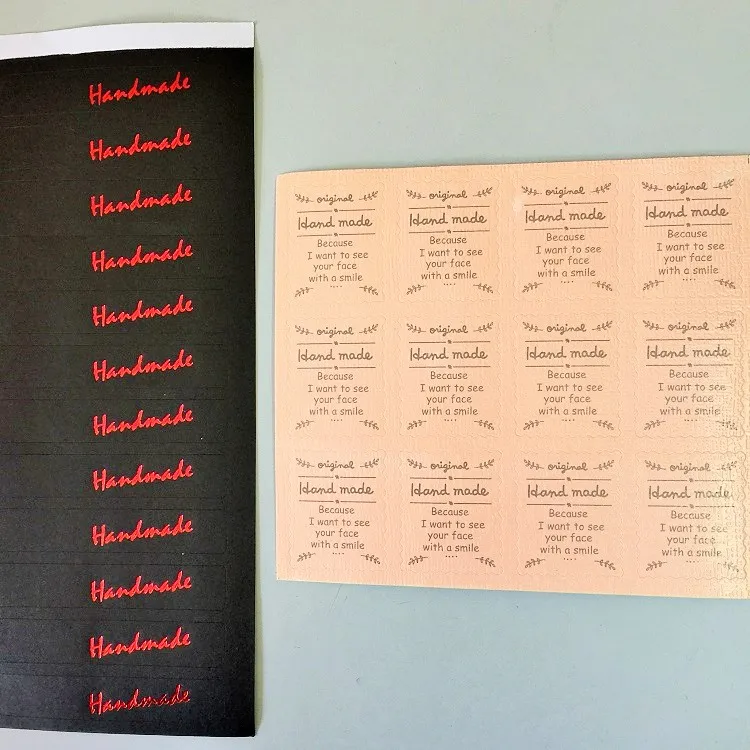 Handmade
Handmade
Handmade
Handmade
Handmade
Handmade
Handmade
Handmade
Handmade
Handmade
Handmade
Handmade
original
Hand made
Because
I want to see
your face
with a smile
original
Hand made
Because
I want to see
your face
with a smile
original
Hand made
Because
I want to see
your face
with a smile
original
Hand made
Because
I want to see
your face
with a smile
original
Hand made
Because
I want to see
your face
with a smile
original
Hand made
Because
I want to see
your face
with a smile
original
Hand made
Because
I want to see
your face
with a smile
original
Hand made
Because
I want to see
your face
with a smile
original
Hand made
Because
I want to see
your face
with a smile
original
Hand made
Because
I want to see
your face
with a smile
original
Hand made
Because
I want to see
your face
with a smile
original
Hand made
Because
I want to see
your face
with a smile